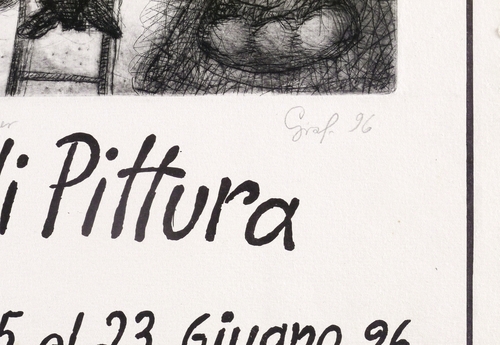 Graf. 96
di Pittura
5 al 23 Giugno 96